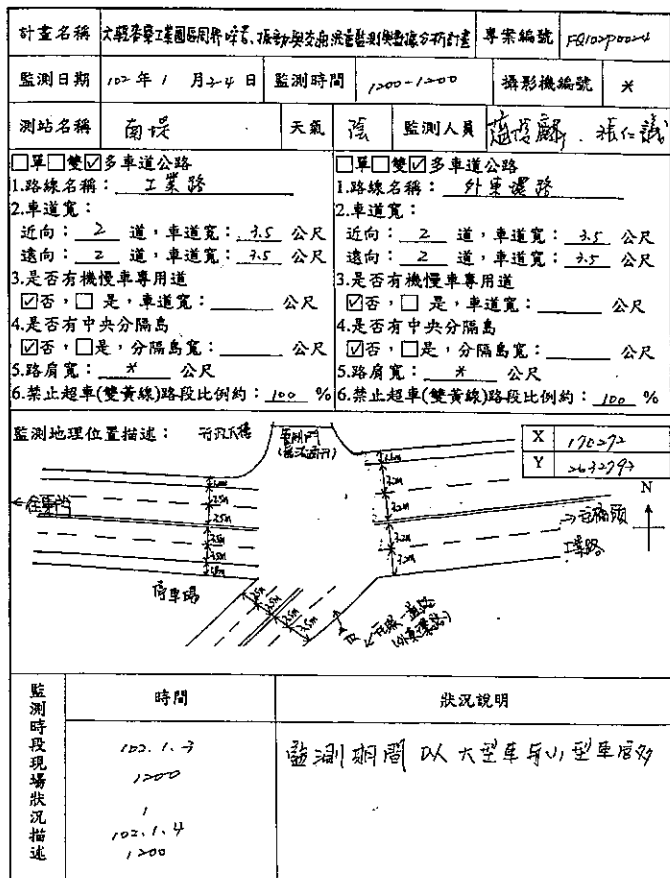 計畫名稱 六輕麥寮工業園區周界噪音、振動與交通流量監測與數據分析計畫 專案編號 FQ102P0024
監測日期 102年1月3-4日 監測時間 1200-1200 攝影機編號 *
測站名稱 南堤 天氣 陰 監測人員 張仁議
□單□雙☑多車道公路
1.路線名稱：工業路
2.車道寬：
近向：2 道，車道寬：3.5 公尺
遠向：2 道，車道寬：3.5 公尺
3.是否有機慢車專用道
☑否，□ 是，車道寬： 公尺
4.是否有中央分隔島
☑否，□是，分隔島寬： 公尺
5.路肩寬：* 公尺
6.禁止超車(雙黃線)路段比例約：100 %
□單□雙☑多車道公路
1.路線名稱：外東環路
2.車道寬：
近向：2 道，車道寬：3.5 公尺
遠向：2 道，車道寬：3.5 公尺
3.是否有機慢車專用道
☑否，□ 是，車道寬： 公尺
4.是否有中央分隔島
☑否，□是，分隔島寬： 公尺
5.路肩寬：* 公尺
6.禁止超車(雙黃線)路段比例約：100 %
監測地理位置描述：
X 170272
Y 2632797
N
3.2m
3.2m
3.2m
3.2m
3.5m
3.5m
3.5m
3.5m
工業路
停車場
(外東環路)
監測時段現場狀況描述
時間 狀況說明
102.1.3
1200
102.1.4
1200
監測期間以大型車與小型車居多